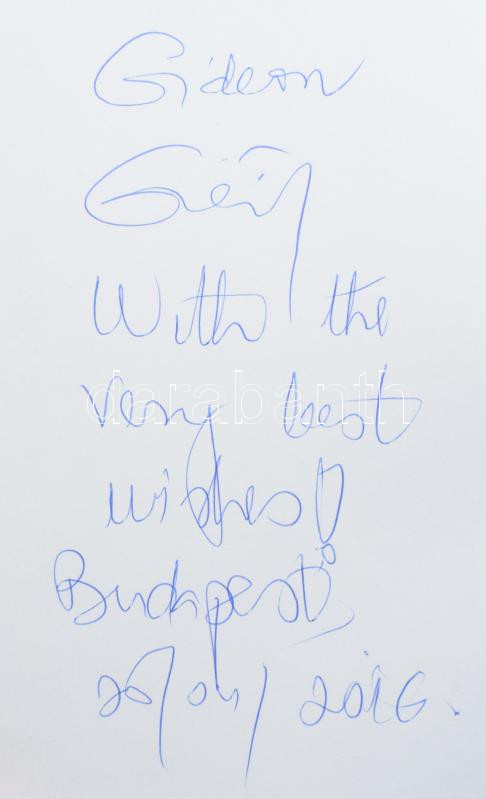 Gideon
Greif
With the
very best
wishes!
Budapest,
20/04/2016.
darabanth